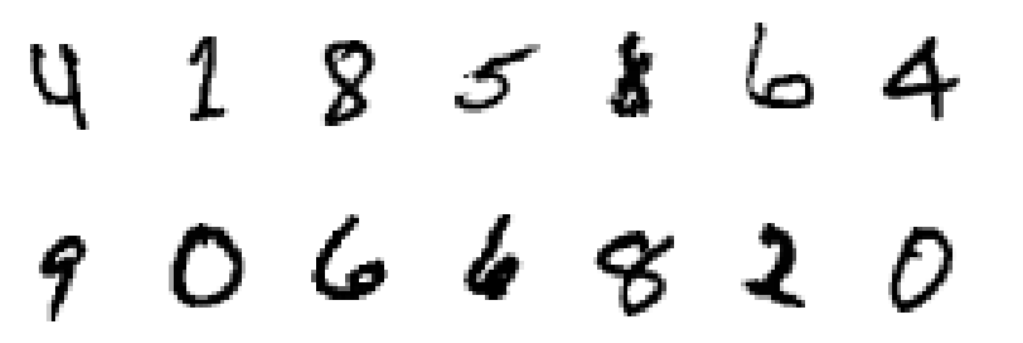 4 1 8 5 8 6 4
9 0 6 6 8 2 0